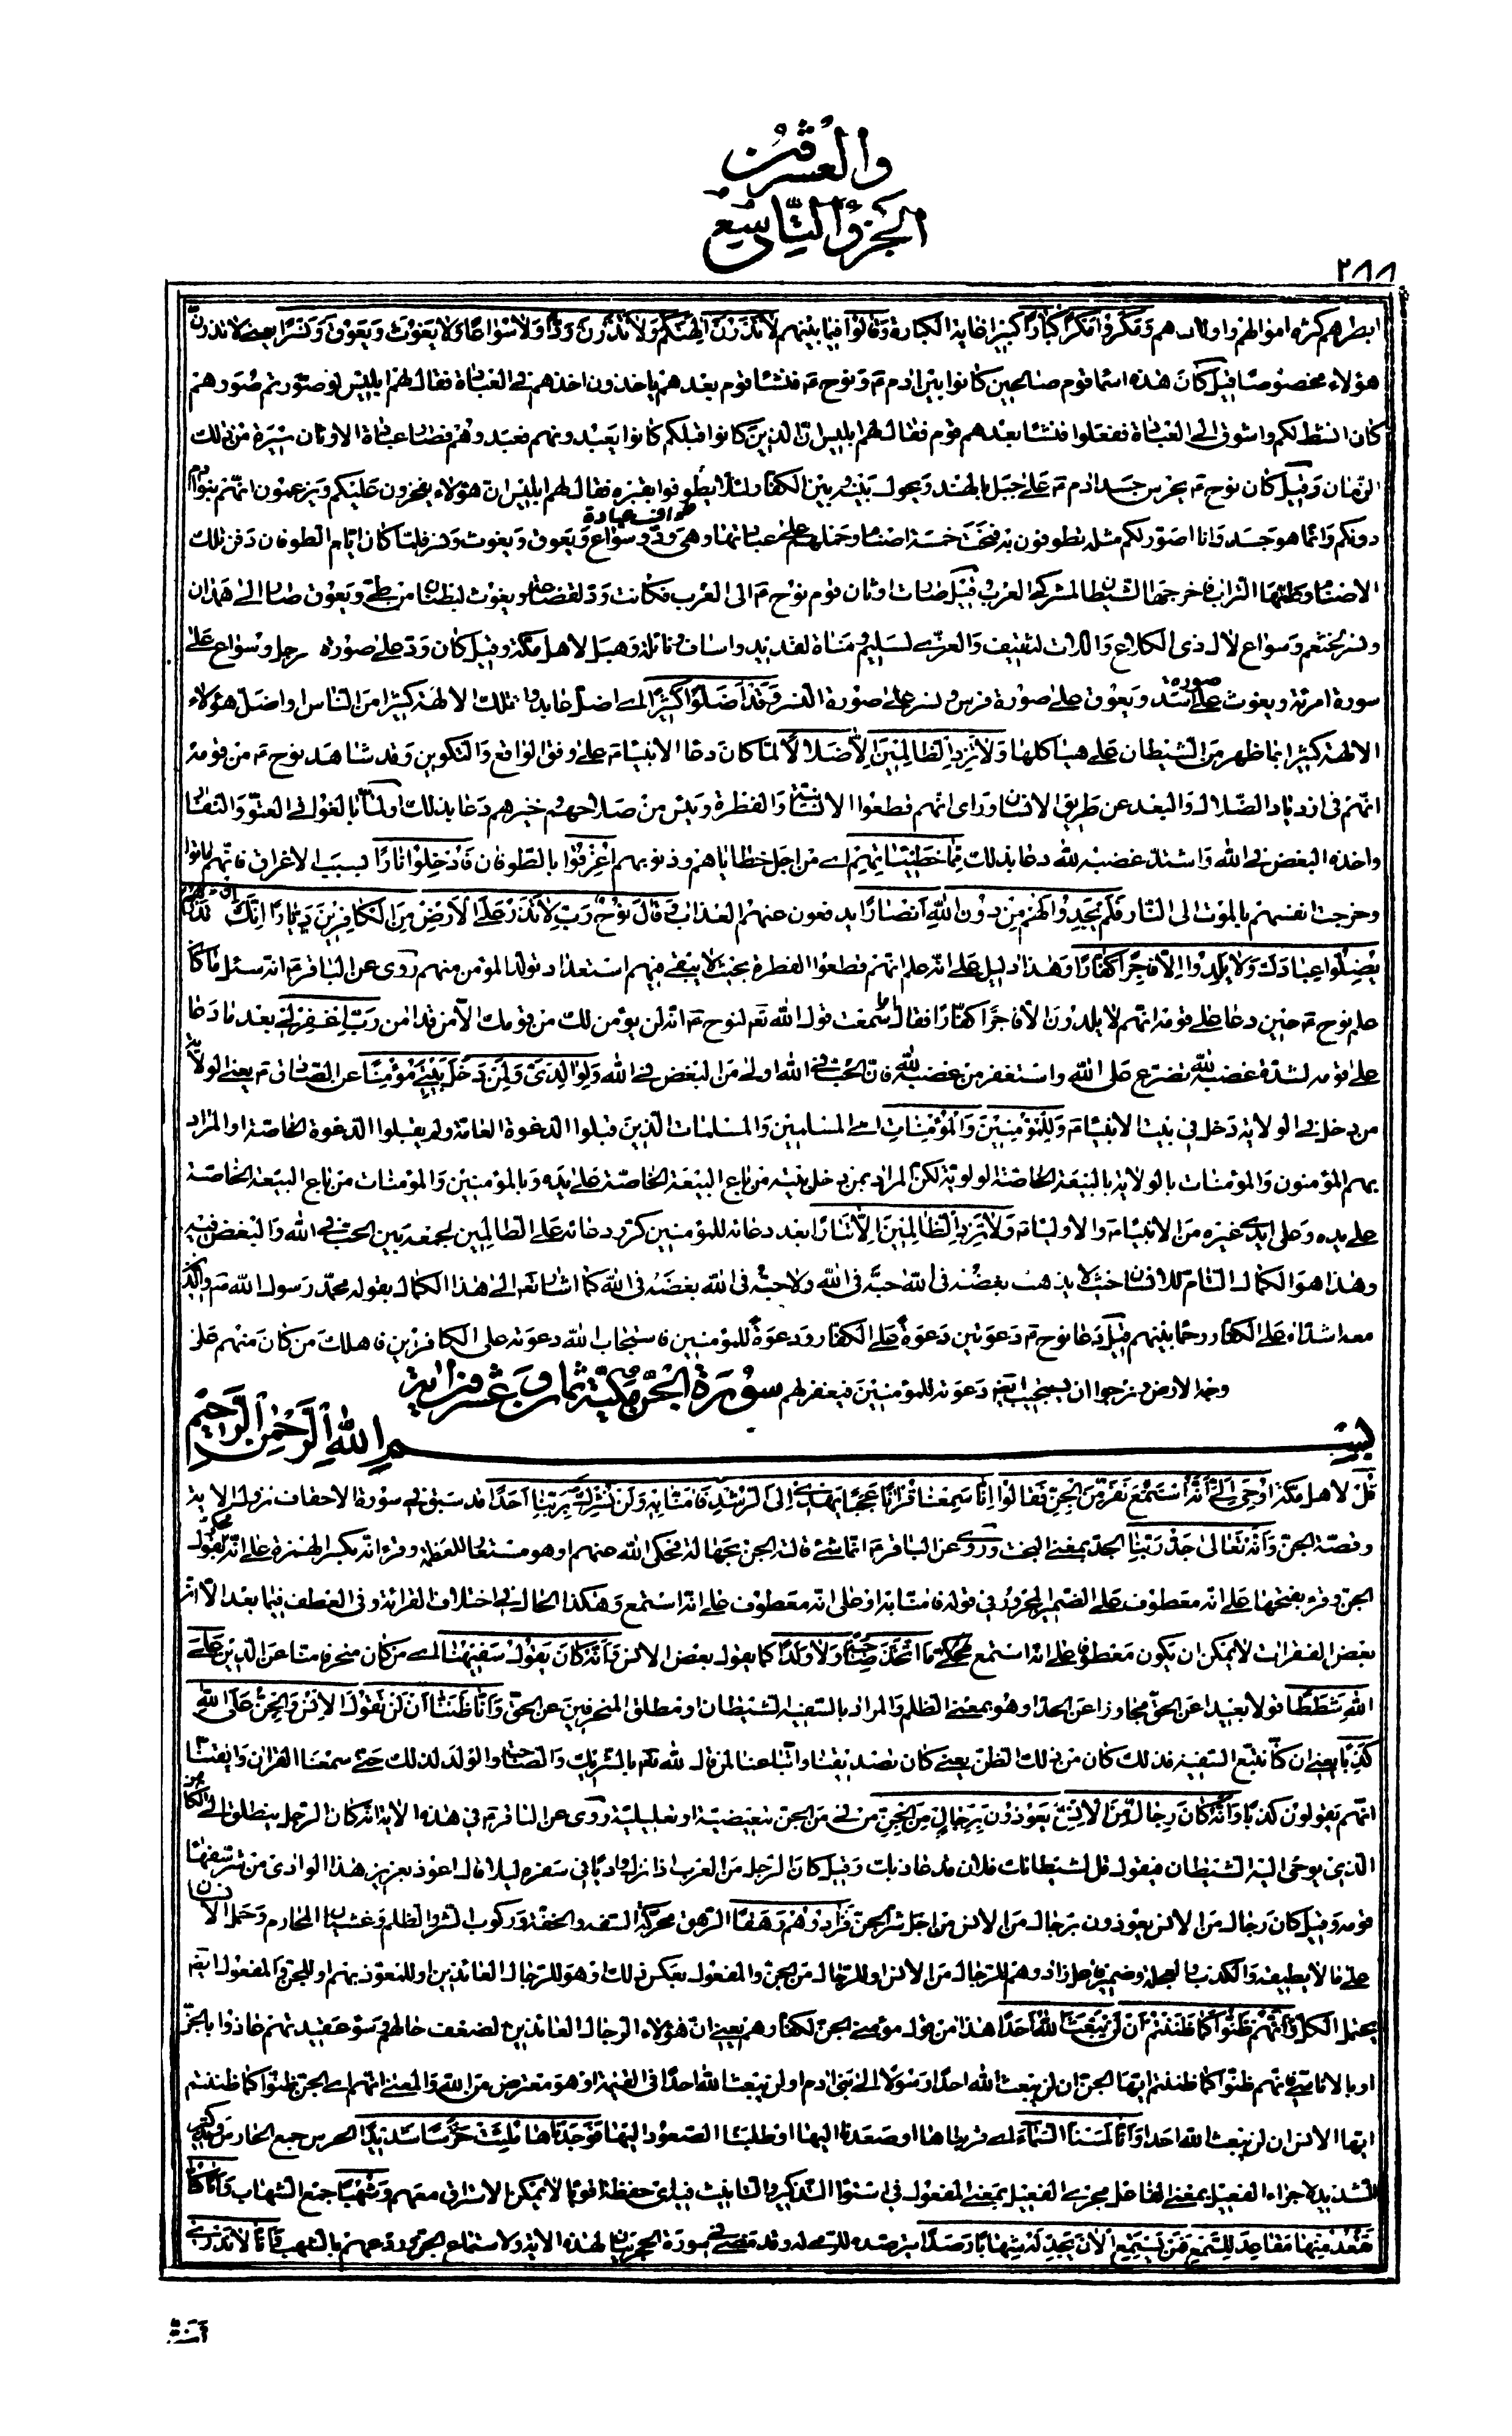 والعشرون
الجزو التاسع
٢٨٨
ابطرهم كثرة اموالهم واولادهم وَمَكَرُوا مَكْرًا كُبَّارًا كبيرا غاية الكبارة وَقَالُوا فيما بينهم لَا تَذَرُنَّ آلِهَتَكُمْ وَلَا تَذَرُنَّ وَدًّا وَلَا سُوَاعًا وَلَا يَغُوثَ وَيَعُوقَ وَنَسْرًا يعنى لا تذرن
هؤلاء مخصوصا قيل كان هذه اسماء قوم صالحين كانوا بين ادم ع ونوح ع فنشأ قوم بعدهم ياخذون اخذهم فى العبادة فقال لهم ابليس لو صورتم صورهم
كان انشط لكم واشوق الى العبادة ففعلوا فنشأ بعدهم قوم فقال لهم ابليس ان الذين كانوا قبلكم كانوا يعبدونهم فعبدوهم فصار عبادة الاوثان سيرة من ذلك
الزمان وقيل كان نوح ع يحرس جسد ادم ع على جبل بالهند ويحول بينه وبين الكفار لئلا يطوفوا بقبره فقال لهم ابليس ان هؤلاء يفخرون عليكم ويزعمون انهم بنو ادم
دونكم وانما هو جسد وانا اصور لكم مثله تطوفون به فنحت خمسة اصنام وحملهم على عبادتها وهى ود وسواع ويعوق ويغوث ونسر فلما كان ايام الطوفان دفن تلك
الاصنام وطمها التراب فاخرجها الشيطان لمشركى العرب قيل صارت اوثان قوم نوح ع الى العرب فكانت ود لقضاعة ويغوث لبطنان من طى ويعوق صار الى همدان
ونسر لخثعم وسواع لال ذى الكلاع واللات لثقيف والعزى لسليم ومناة لقديد واساف ونائلة وهبل لاهل مكة وقيل كان ود على صورة رجل وسواع على
سورة امرئة ويغوث على صورة اسد ويعوق على صورة فرس ونسر على صورة النسر وَقَدْ أَضَلُّوا كَثِيرًا اى اضل عابدوا تلك الالهة كثيرا من الناس او اضل هؤلاء
الالهة كثيرا بما ظهر من الشيطان على هياكلها وَلَا تَزِدِ الظَّالِمِينَ إِلَّا ضَلَالًا لما كان دعاء الانبياء ع على وفق الواقع والتكوين وقد شاهد نوح ع من قومه
انهم فى ازدياد الضلال والبعد عن طريق الانسان وراى انهم قطعوا الانسانية والفطرة ويئس من صلاحهم وخيرهم دعا بذلك او لما بالغوا فى العتو والنفار
واخذه البغض فى الله واشتد غضبه لله دعا بذلك مِمَّا خَطِيئَاتِهِمْ اى من اجل خطاياهم وذنوبهم أُغْرِقُوا بالطوفان فَأُدْخِلُوا نَارًا بسبب الاغراق فانهم ماتوا
وخرجت انفسهم بالموت الى النار فَلَمْ يَجِدُوا لَهُمْ مِنْ دُونِ اللَّهِ أَنْصَارًا يدفعون عنهم العذاب وَقَالَ نُوحٌ رَبِّ لَا تَذَرْ عَلَى الْأَرْضِ مِنَ الْكَافِرِينَ دَيَّارًا إِنَّكَ إِنْ تَذَرْهُمْ
يُضِلُّوا عِبَادَكَ وَلَا يَلِدُوا إِلَّا فَاجِرًا كَفَّارًا وهذا دليل على انه علم انهم قطعوا الفطرة بحيث لا يبقى فيهم استعداد تولد المؤمن منهم روى عن الباقر ع انه سئل ما كان
علم نوح ع حين دعا على قومه انهم لا يلدون الا فاجرا كفارا فقال اما سمعت قول الله تعم لنوح ع انه لن يؤمن لك من قومك الا من قد امن رَبِّ اغْفِرْ لِي بعد ما دعا
على قومه لشدة غضبه لله تضرع على الله واستغفر من غضبه لله فان الحب فى الله اولى من البغض فى الله وَلِوَالِدَيَّ وَلِمَنْ دَخَلَ بَيْتِيَ مُؤْمِنًا عن الصادق ع يعنى الولاية
من دخل فى الولاية دخل فى بيت الانبياء ع وَلِلْمُؤْمِنِينَ وَالْمُؤْمِنَاتِ اى المسلمين والمسلمات الذين قبلوا الدعوة العامة ولم يقبلوا الدعوة الخاصة او المراد
بهم المؤمنون والمؤمنات بالولاية بالبيعة الخاصة الولوية لكن المراد بمن دخل بيته من بايع البيعة الخاصة على يده وبالمؤمنين والمؤمنات من بايع البيعة الخاصة
على يده وعلى ايدى غيره من الانبياء ع والاولياء ع وَلَا تَزِدِ الظَّالِمِينَ إِلَّا تَبَارًا بعد دعائه للمؤمنين كرر دعائه على الظالمين لجمعه بين الحب فى الله والبغض فيه
وهذا هو الكمال التام للانسان حيث لا يذهب بغضه فى الله حبه فى الله ولا حبه فى الله بغضه فى الله كما اشار تعم الى هذا الكمال بقوله محمد رسول الله ص والذين
معه اشداء على الكفار رحماء بينهم قيل دعا نوح ع دعوتين دعوة على الكفار ودعوة للمؤمنين فاستجاب الله دعوته على الكافرين فاهلك من كان منهم على
وجه الارض ونرجو ان يستجيب ايضا دعوته للمؤمنين فيغفر لهم سورة الجن مكية ثمان وعشرون اية
بسم الله الرحمن الرحيم
قُلْ لاهل مكة أُوحِيَ إِلَيَّ أَنَّهُ اسْتَمَعَ نَفَرٌ مِنَ الْجِنِّ فَقَالُوا إِنَّا سَمِعْنَا قُرْآنًا عَجَبًا يَهْدِي إِلَى الرُّشْدِ فَآمَنَّا بِهِ وَلَنْ نُشْرِكَ بِرَبِّنَا أَحَدًا قد سبق فى سورة الاحقاف نزول الاية
وقصة الجن وَأَنَّهُ تَعَالَى جَدُّ رَبِّنَا الجد بمعنى البخت وروى عن الباقر ع انما شئ قالته الجن بجهالة فحكى الله عنهم او هو مستعار للعظمة وقرء انه بكسر الهمزة على انه محكى بقول
الجن وقرء بفتحها على انه معطوف على الضمير المجرور فى قوله فامنا به او على انه معطوف على انه استمع وهكذا الحال فى اختلاف القرائة وفى العطف فيما بعد الا ان
بعض الفقرات لا يمكن ان يكون معطوفا على انه استمع مَا اتَّخَذَ صَاحِبَةً وَلَا وَلَدًا كما يقوله بعض الانس وَأَنَّهُ كَانَ يَقُولُ سَفِيهُنَا اى من كان منحرفا منا عن الدين عَلَى
اللَّهِ شَطَطًا قولا بعيدا عن الحق مجاوزا عن الحد او هو بمعنى الظلم والمراد بالسفيه الشيطان او مطلق المنحرفين عن الحق وَأَنَّا ظَنَنَّا أَنْ لَنْ تَقُولَ الْإِنْسُ وَالْجِنُّ عَلَى اللَّهِ
كَذِبًا يعنى ان كنا نتبع السفيه فذلك كان من ذلك الظن يعنى كان تصديقنا واتباعنا لمن قال لله تعم بالشريك والصاحبة والولد لذلك حتى سمعنا القران وايقنا
انهم يقولون كذبا وَأَنَّهُ كَانَ رِجَالٌ مِنَ الْإِنْسِ يَعُوذُونَ بِرِجَالٍ مِنَ الْجِنِّ من فى من الجن تبعيضية او تعليلية روى عن الباقر ع فى هذه الاية انه كان الرجل ينطلق الى الكاهن
الذى يوحى اليه الشيطان فيقول قل لشيطانك فلان قد عاذ بك وقيل كان الرجل من العرب اذا نزل واديا فى سفره ليلا قال اعوذ بعزيز هذا الوادى من شر سفهاء
قومه وقيل كان رجال من الانس يعوذون برجال من الانس من اجل شر الجن فَزَادُوهُمْ رَهَقًا الرهق محركة السفه والخفة وركوب الشر والظلم وغشيان المحارم وحمل الانسان
على ما لا يطيقه والكذب والعجلة وضمير فاعل زادوهم للرجال من الانس او للرجال من الجن والمفعول بعكس ذلك او هو للرجال العائذين او للمتعوذ بهم او للجن والمفعول ايضا
يحتمل الكل وَأَنَّهُمْ ظَنُّوا كَمَا ظَنَنْتُمْ أَنْ لَنْ يَبْعَثَ اللَّهُ أَحَدًا هذا من قول مؤمنى الجن لكفارهم يعنى ان هؤلاء الرجال العائذين لضعف حالهم وسوء عقيدتهم عاذوا بالجن
او بالاناسى فانهم ظنوا كما ظننتم ايها الجن ان لن يبعث الله احدا رسولا الى بنى ادم او لن يبعث الله احدا فى القيمة او هو معترض من الله والمعنى انهم اى الجن ظنوا كما ظننتم
ايها الانس ان لن يبعث الله احدا وَأَنَّا لَمَسْنَا السَّمَاءَ اى قربناها او صعدنا اليها او طلبنا الصعود اليها فَوَجَدْنَاهَا مُلِئَتْ حَرَسًا شَدِيدًا الحرس جمع الحارس
الشديد لاجراء الفعيل بمعنى الفاعل مجرى الفعيل بمعنى المفعول فى استواء التذكير والتانيث فيه اى حفظة اقوياء لا يمكن الاستراق معهم وَشُهُبًا جمع الشهاب وَأَنَّا كُنَّا
نَقْعُدُ مِنْهَا مَقَاعِدَ لِلسَّمْعِ فَمَنْ يَسْتَمِعِ الْآنَ يَجِدْ لَهُ شِهَابًا رَصَدًا يترصده للرمى له وقد مضى فى سورة الحجر بيان لهذه الاية ولاستماع الجن وردعهم بالشهب وَأَنَّا لَا نَدْرِي